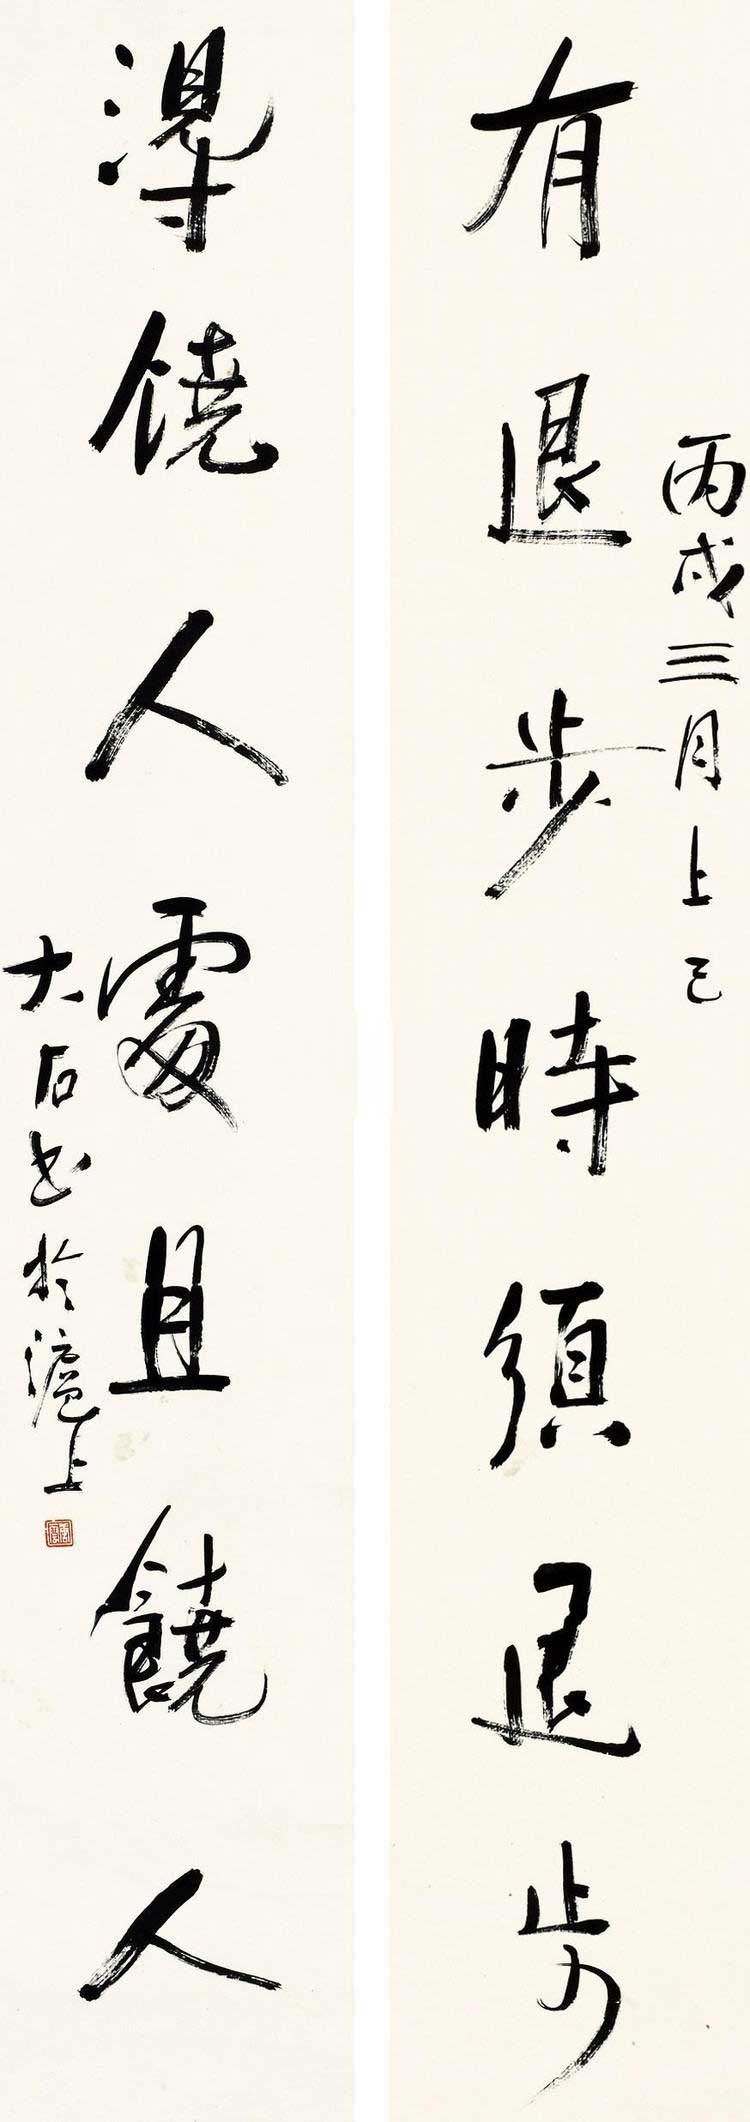 丙戌三月上巳
有退步時須退步
淂饶人處且饒人
大石书於滬上